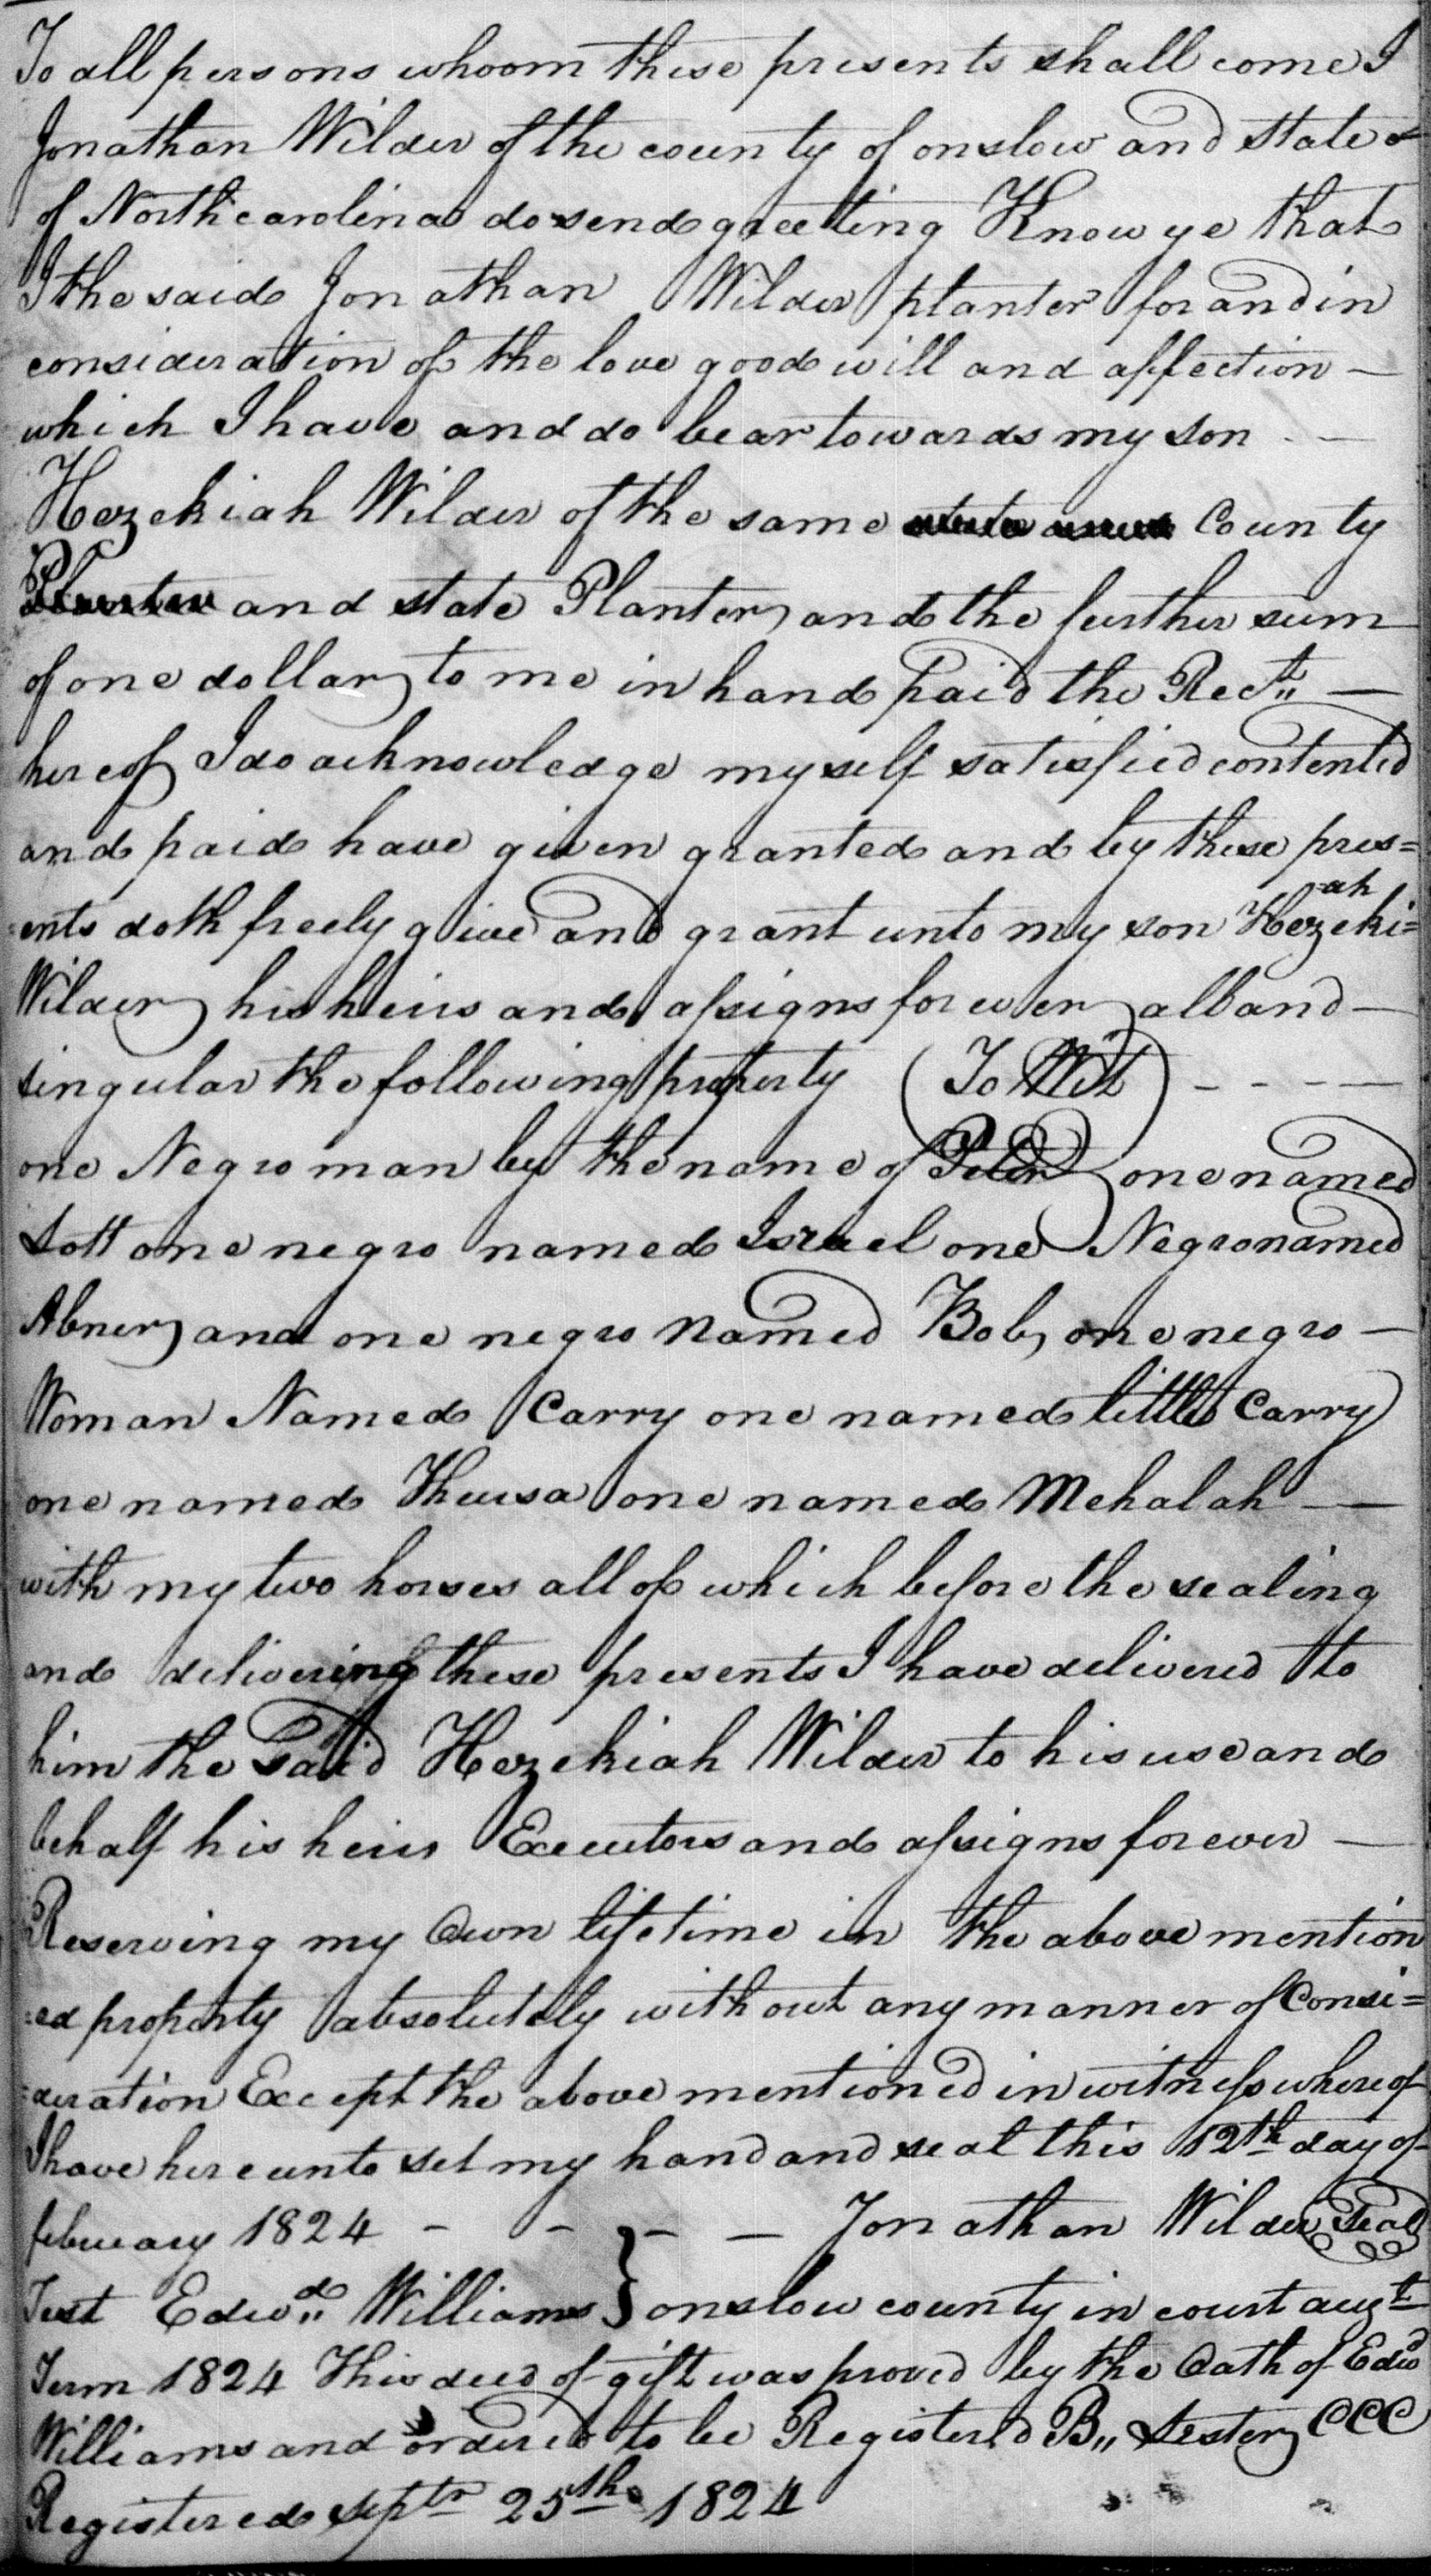 To all persons whoom these presents shall come I
Jonathan Wilder of the county of onslow and state of
of North carolina do send greeting Know ye that
I the said Jonathan Wilder planter for and in
consideration of the love good will and affection —
which I have and do bear towards my son - —
Hezekiah Wilder of the same County
and state Planter and the further sum
of one dollar to me in hand paid the Rect. —
hereof I do acknowledge myself satisfied contented
and paid have given granted and by these pres=
=ents doth freely give and grant unto my son Hezeki=ah
Wilder his heirs and assigns for ever all and —
singular the following property (To Wit) - - - —
one Negro man by the name of Peter one named
Sott one negro named Israel one Negro named
Abner and one negro Named Bob, one negro —
Woman Named Carry one named little Carry
one named one named Mehalah —
with my two horses all of which before the sealing
and delivering these presents I have delivered to
him the Said Hezekiah Wilder to his use and
behalf his heirs Executors and assigns forever —
Reserving my Own lifetime in the above mention
=ed property absolutely without any manner of Consi=
=deration Except the above mentioned in witness whereof
I have hereunto set my hand and seal this 12th day of
february 1824 - - } - — Jonathan Wilder Seal
Test Edwd. Williams } onslow county in court augt
Term 1824 This deed of gift was proved by the Oath of Edwd
Williams and ordered to be Registered B,, Lester CCC
Registered Septr 25th 1824